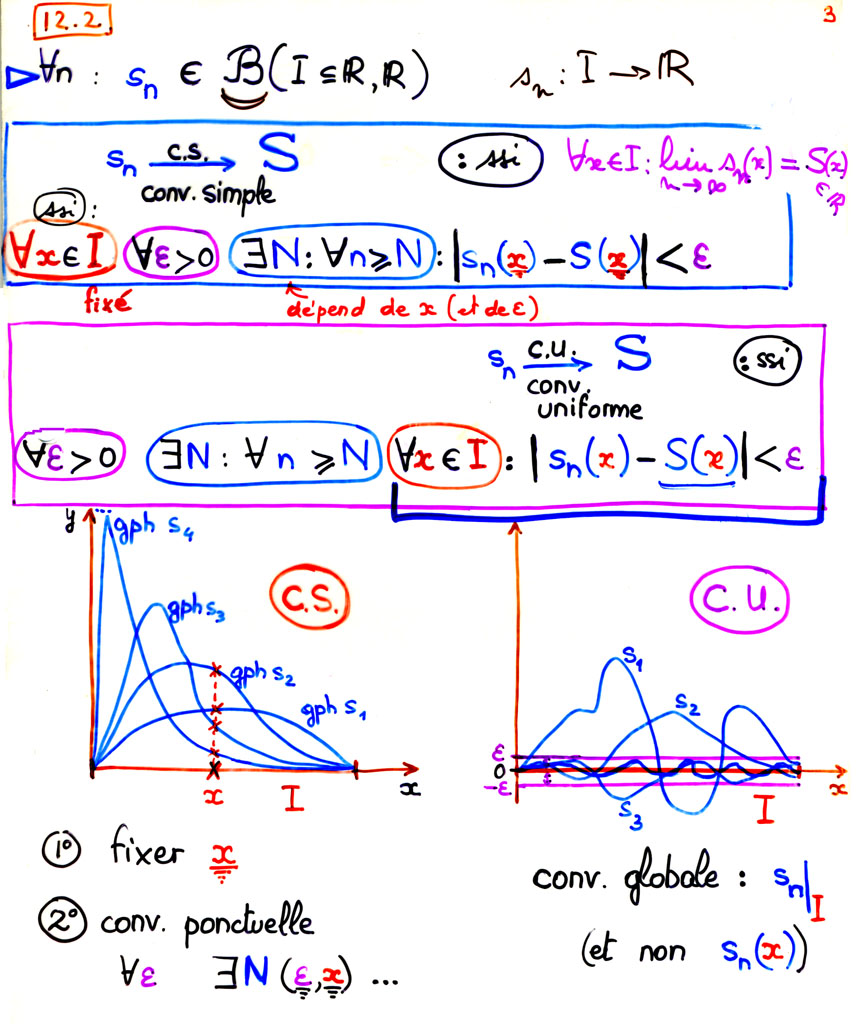 12.2
3
∀n : sₙ ∈ B(I ⊆ ℝ, ℝ) sₙ : I → ℝ
sₙ —c.s.→ S :ssi ∀x∈I : lim sₙ(x) = S(x)
conv. simple n→∞ ∈ℝ
ssi :
∀x∈I ∀ε>0 ∃N : ∀n⩾N : |sₙ(x) – S(x)| < ε
fixé dépend de x (et de ε)
sₙ —C.U.→ S :ssi
conv.
uniforme
∀ε>0 ∃N : ∀n⩾N ∀x∈I : |sₙ(x) – S(x)| < ε
y
... gph s₄
C.S.
gph s₃
gph s₂
gph s₁
x I x
C.U.
s₁
s₂
ε
0
-ε
s₃
I x
1° fixer x
2° conv. ponctuelle
∀ε ∃N (ε,x) ...
conv. globale : sₙ|I
(et non sₙ(x))